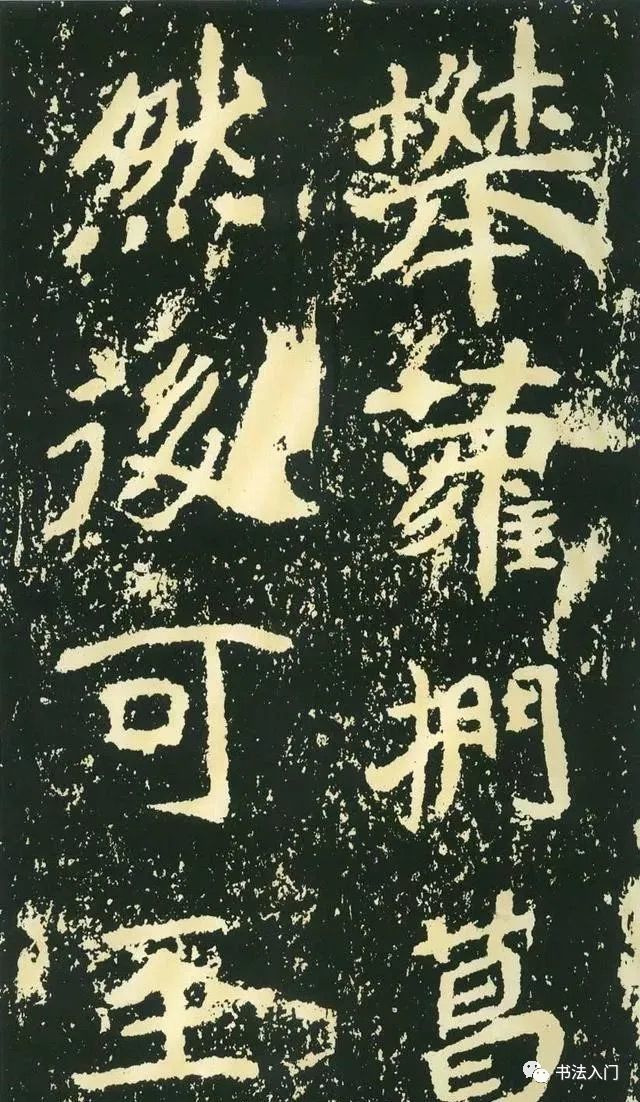 攀蘿捫葛
然後可至
书法入门